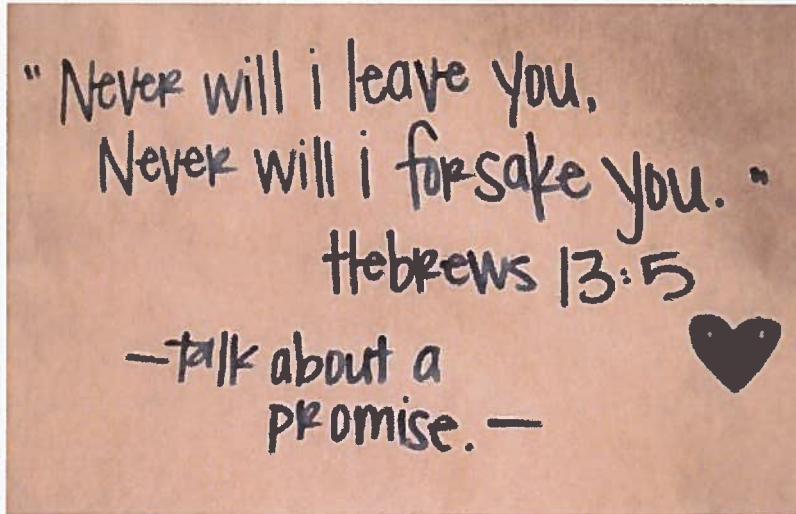 " Never will i leave you,
Never will i forsake you. "
Hebrews 13:5
—talk about a
promise.—